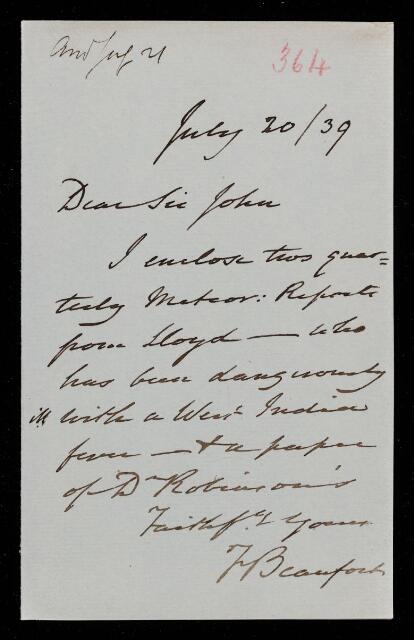 Ansd July 21
364
July 20/39
Dear Sir John
I enclose two quar=
terly Meteor: Reports
from Lloyd — who
has been dangerously
ill with a West India
fever — & a paper
of Dr Robinson's
Faithfly Yours
F Beaufort